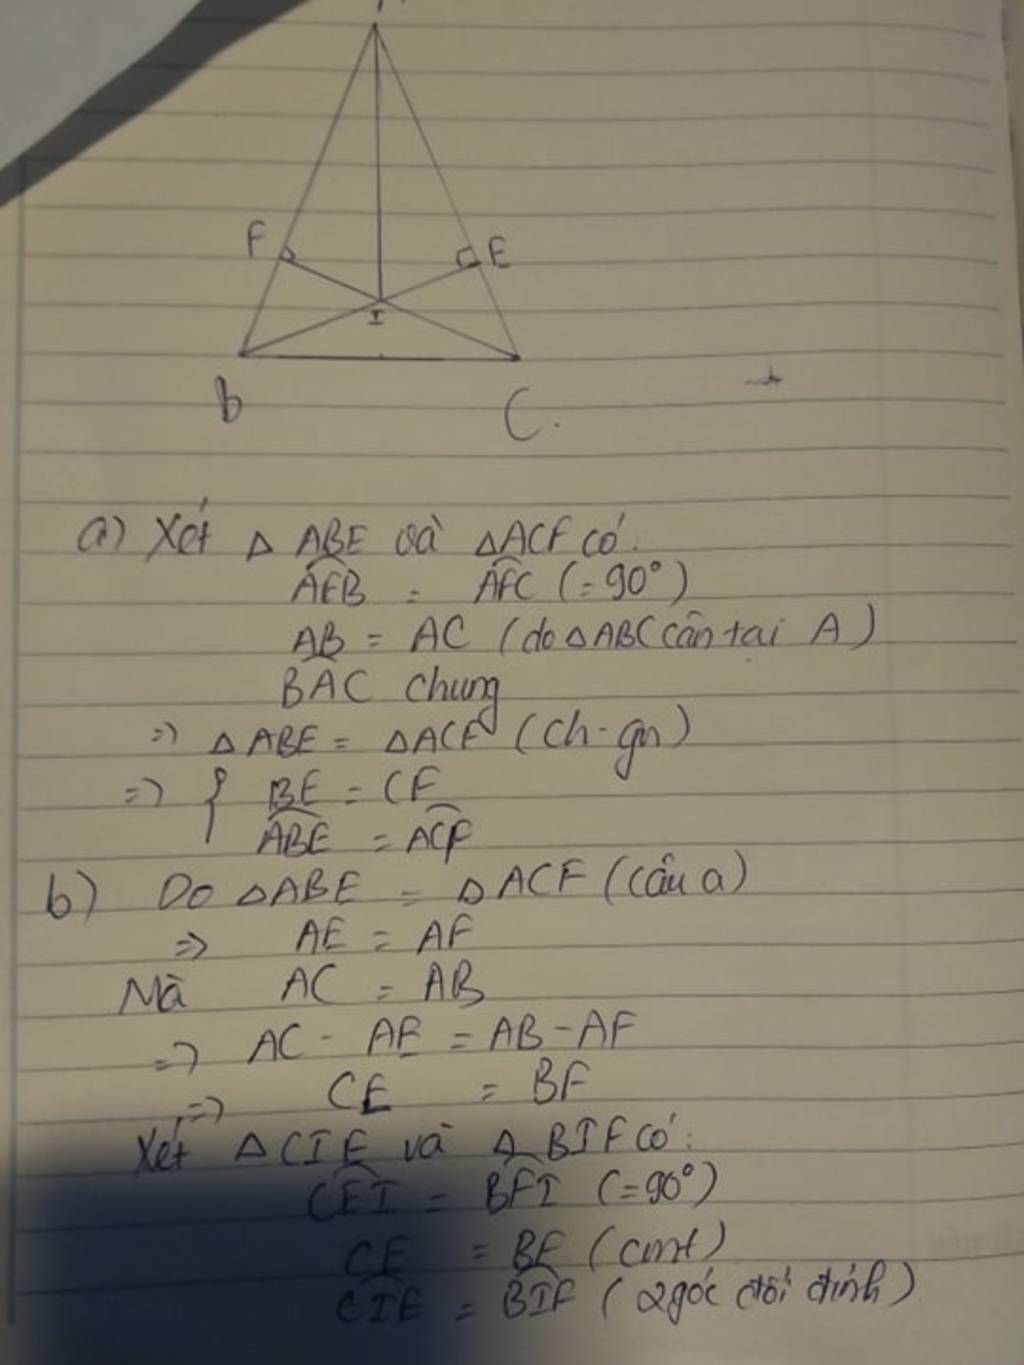 F
E
I
b
C.
a) Xét Δ ABE và ΔACF có:
AEB = AFC (=90°)
AB = AC (do ΔABC cân tại A)
BAC chung
=> ΔABE = ΔACF (ch-gn)
=> { BE = CF
ABE = ACF
b) Do ΔABE = ΔACF (câu a)
=> AE = AF
Mà AC = AB
=> AC - AE = AB - AF
=> CE = BF
Xét ΔCIE và Δ BIF có:
CEI = BFI (=90°)
CE = BF (cmt)
CIE = BIF (2 góc đối đỉnh)